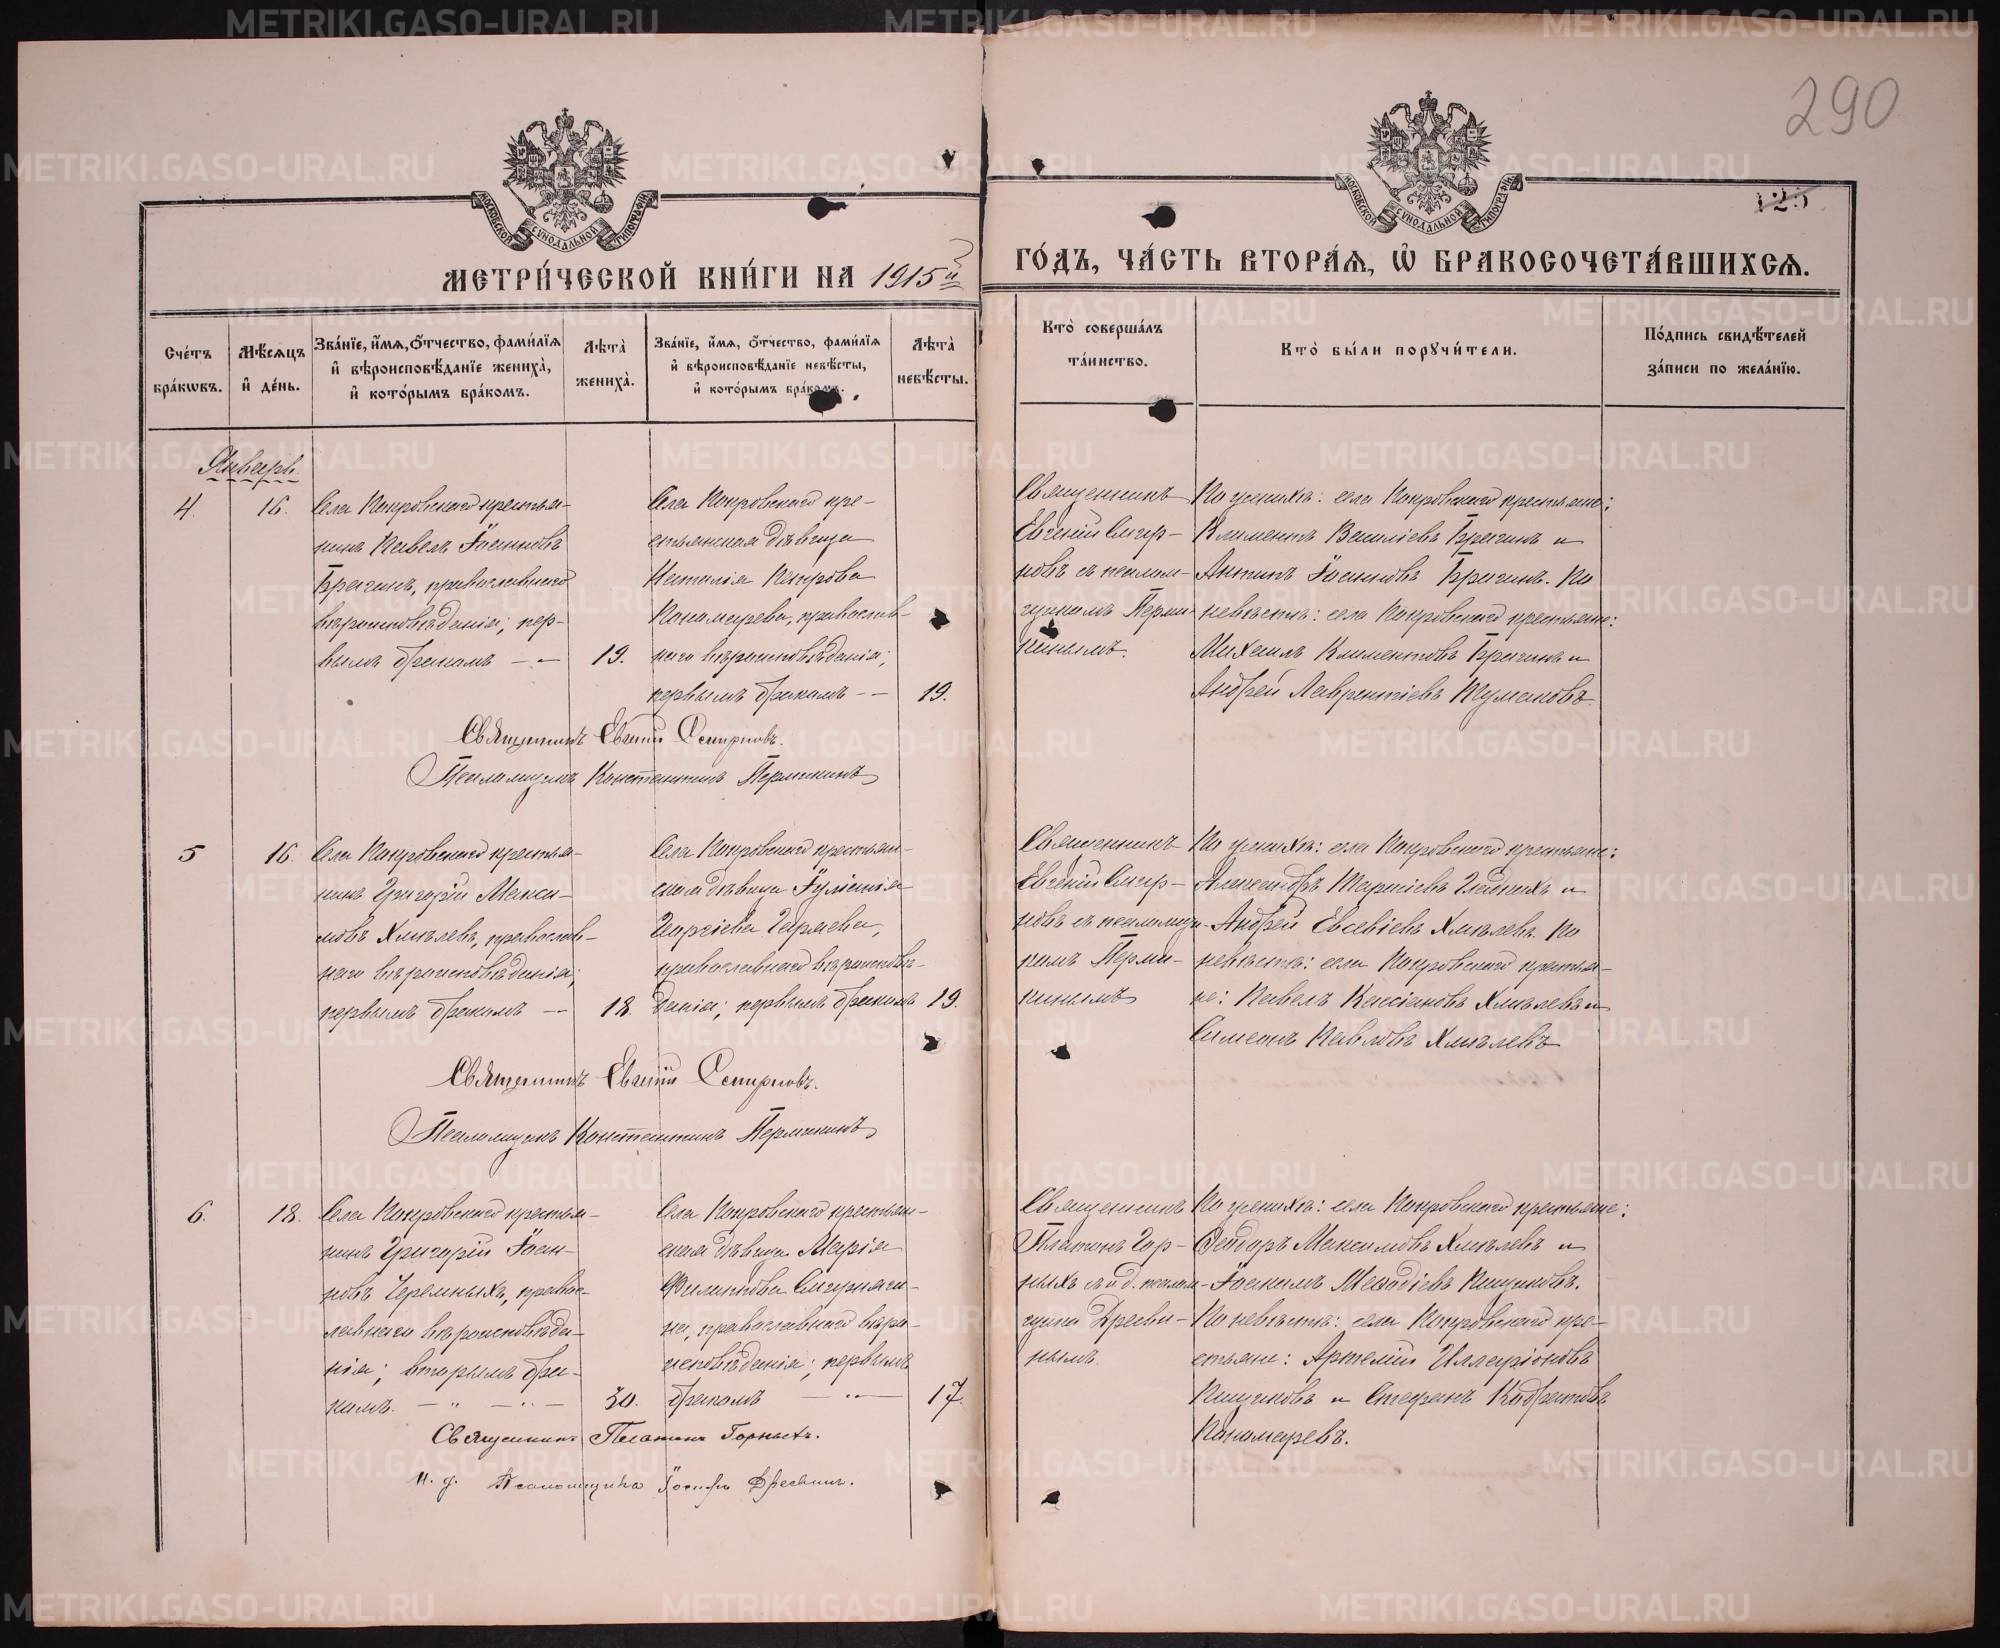 290
125
МОСКОВСКОЙ СѴНОДАЛЬНОЙ ТИПОГРАФІИ
МОСКОВСКОЙ СѴНОДАЛЬНОЙ ТИПОГРАФІИ
МЕТРИ́ЧЕСКОЙ КНИ́ГИ НА 1915й
ГО́ДЪ, ЧА́СТЬ ВТОРА́Ѧ, Ѡ҆ БРАКОСОЧЕТА́ВШИХСѦ.
Сче́тъ бра́кѡвъ.
Мѣ́сѧцъ и҆ де́нь.
Зва́нїе, и҆́мѧ, ѻ҆́тчество, фами́лїѧ и҆ вѣроисповѣ́данїе жениха̀, и҆ кото́рымъ бра́комъ.
Лѣ́та̀ жениха̀.
Зва́нїе, и҆́мѧ, ѻ҆́тчество, фами́лїѧ и҆ вѣроисповѣ́данїе невѣ́сты, и҆ кото́рымъ бра́комъ.
Лѣ́та̀ невѣ́сты.
Кто̀ соверша́лъ та́инство.
Кто̀ бы́ли порꙋчи́тели.
По́дпись свидѣ́телей за́писи по жела́нїю.
Январь
4. 16.
Села Покровскаго крестья-
нинъ Павелъ Іоанновъ
Брагинъ, православнаго
вѣроисповѣданія; пер-
вымъ бракомъ — „— 19.
Села Покровскаго кре-
стьянская дѣвица
Наталія Петрова
Пономарева, православ-
наго вѣроисповѣданія;
первымъ бракомъ — — 19.
Священникъ
Евгеній Смир-
новъ съ псалом-
щикомъ Перми-
кинымъ.
По женихѣ: села Покровскаго крестьяне:
Климентъ Василіевъ Брагинъ и
Антипъ Іоанновъ Брагинъ. По
невѣстѣ: села Покровскаго крестьяне:
Михаилъ Климентовъ Брагинъ и
Андрей Лаврентіевъ Тумаковъ.
Священникъ Евгеній Смирновъ.
Псаломщикъ Константинъ Пермикинъ
5 16.
Села Покровскаго крестья-
нинъ Григорій Макси-
мовъ Хмѣлевъ, православ-
наго вѣроисповѣданія;
первымъ бракомъ — 18.
Села Покровскаго крестьян-
ская дѣвица Іуліанія
Георгіева Гаряева,
православнаго вѣроисповѣ-
данія; первымъ бракомъ 19.
Священникъ
Евгеній Смир-
новъ съ псаломщи-
комъ Перми-
кинымъ
По женихѣ: села Покровскаго крестьяне:
Александръ Гладкихъ и
Андрей Евсевіевъ Хмѣлевъ. По
невѣстѣ: села Покровскаго крестья-
не: Павелъ Кассіановъ Хмѣлевъ и
Симеонъ Павловъ Хмѣлевъ
Священникъ Евгеній Смирновъ.
Псаломщикъ Константинъ Пермикинъ
6. 18.
Села Покровскаго крестья-
нинъ Григорій Іоан-
новъ Черемныхъ, правос-
лавнаго вѣроисповѣда-
нія; вторымъ бра-
комъ. — „ — „ — 30.
Села Покровскаго крестьян-
ская дѣвица Марія
Филиппова Смирняги-
на, православнаго вѣро-
исповѣданія; первымъ
бракомъ — „ — 17.
Священникъ
Платонъ Гор-
ныхъ съ и.д. псалом-
щика Дресви-
нымъ.
По женихѣ: села Покровскаго крестьяне:
Ѳеодоръ Максимовъ Хмѣлевъ и
Іоакимъ Меѳодіевъ Пищиковъ.
По невѣстѣ: села Покровскаго кре-
стьяне: Артемій Илларіоновъ
Пищиковъ и Стефанъ Кодратовъ
Пономаревъ.
Священникъ Платонъ Горныхъ.
И. д. Псаломщика Іосифъ Дресвинъ.